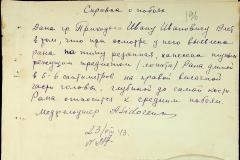 Справка о побоях
196
Дана гр. Приходько Ивану Ивановичу
в том, что при осмотре у него выявлена
рана по типу резаная, нанесена
режущим предметом (лопата) Рана длиной
в 5-6 сантиметров на правой височной
части головы, глубиной до самой кости.
Рана относится к средним побоям.
23/VIII 43.